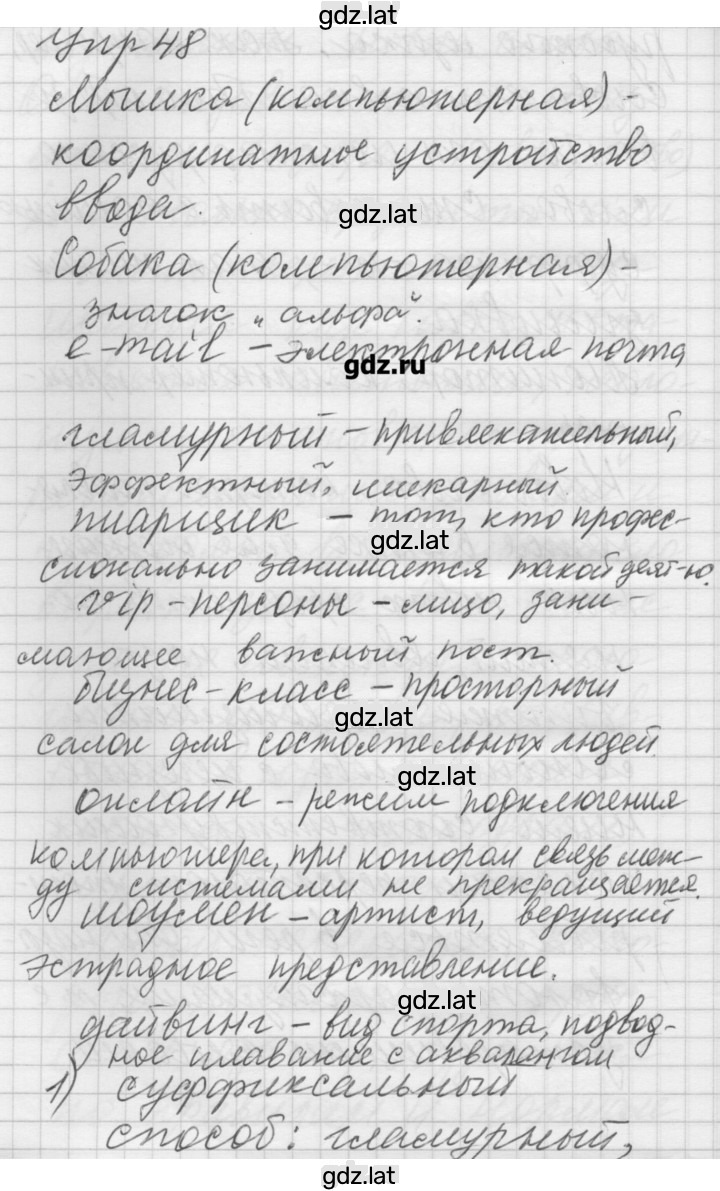 gdz.lat
Упр 48
Мышка (компьютерная) -
координатное устройство
ввода.
gdz.lat
Собака (компьютерная) -
значок „альфа".
e-mail - электронная почта
gdz.ru
гламурный - привлекательный,
эффектный, шикарный.
пиарщик - тот, кто профес-
gdz.lat
сионально занимается такой деят-ю.
vip - персоны - лицо, зани-
мающее важный пост.
бизнес-класс - просторный
gdz.lat
салон для состоятельных людей
gdz.lat
онлайн - режим подключения
компьютера, при котором связь меж-
ду системами не прекращается.
шоумен - артист, ведущий
эстрадное представление.
gdz.lat
дайвинг - вид спорта, подвод-
ное плавание с аквалангом
1) суффиксальный
способ: гламурный,
gdz.lat